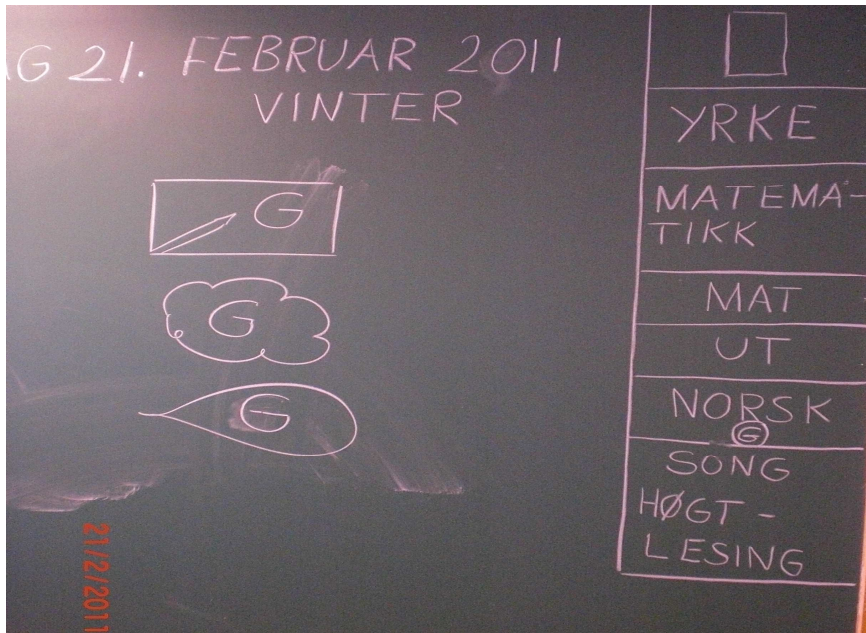 AG 21. FEBRUAR 2011
VINTER
G
G
G
YRKE
MATEMA-
TIKK
MAT
UT
NORSK
G
SONG
HØGT-
LESING
21/2/2011